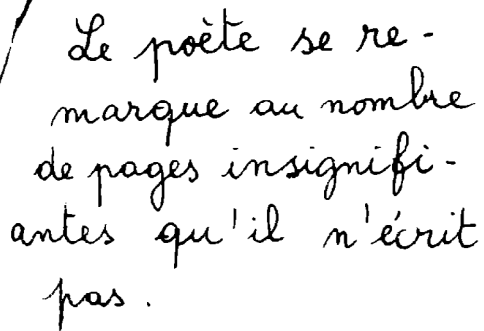 Le poète se re-
marque au nombre
de pages insignifi-
antes qu'il n'écrit
pas.